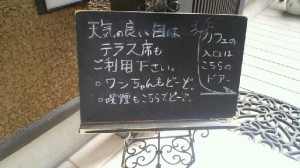 天気の良い日は
テラス席も
ご利用下さい。
○ワンちゃんもどーぞ。
○喫煙もこちらでどーぞ。
カフェの
入口は
こちらの
ドアー